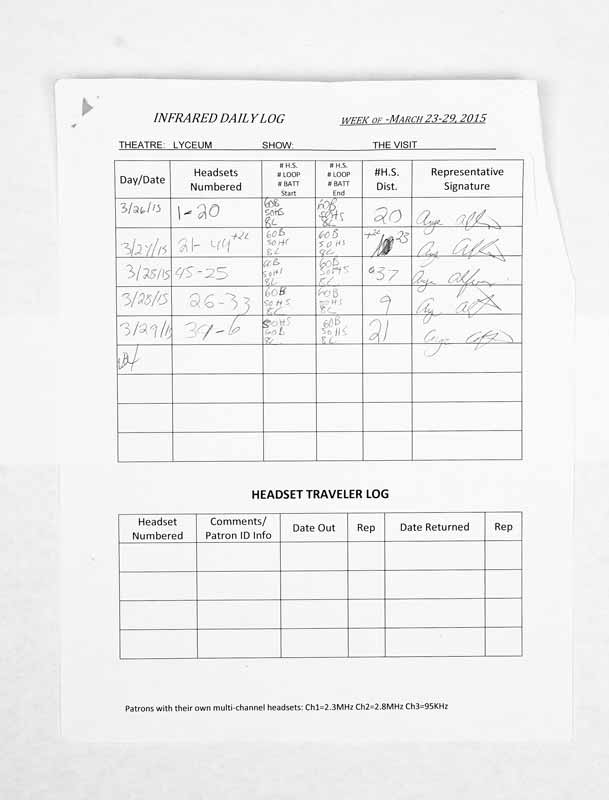 INFRARED DAILY LOG WEEK OF -MARCH 23-29, 2015
THEATRE: LYCEUM SHOW: THE VISIT
Day/Date
Headsets
Numbered
# H.S.
# LOOP
# BATT
Start
# H.S.
# LOOP
# BATT
End
#H.S.
Dist.
Representative
Signature
3/26/15 1-20
60B
50HS
8L
60B
50HS
8L
20
3/27/15 21-44 +22
60B
50HS
8L
60B
50HS
8L
+22 23
3/28/15 45-25
60B
50HS
8L
60B
50HS
8L
37
3/28/15 26-33
60B
50HS
8L
60B
50HS
8L
9
3/29/15 34-6
50HS
60B
8L
60B
50HS
8L
21
HEADSET TRAVELER LOG
Headset
Numbered
Comments/
Patron ID Info
Date Out
Rep
Date Returned
Rep
Patrons with their own multi-channel headsets: Ch1=2.3MHz Ch2=2.8MHz Ch3=95KHz